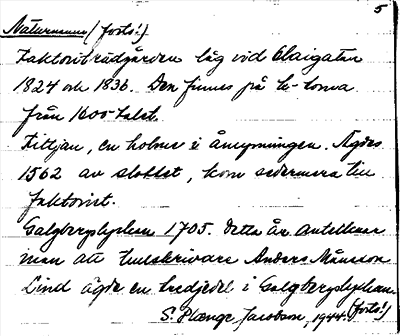 5
Naturnamn (forts!)
Faktoriträdgården låg vid Claigatan
1824 och 1836. Den finnes på
från 1600-talet.
Filtjan, en holme i åmynningen. Ägdes
1562 av slottet, kom sedermera till
faktoriet.
Galgbergslyckan 1705. Detta år antecknar
man att Anders Månsson
Lind ägde en tredjedel i Galgbergslyckan.
S. Plænge Jacobson, 1944. (forts!)